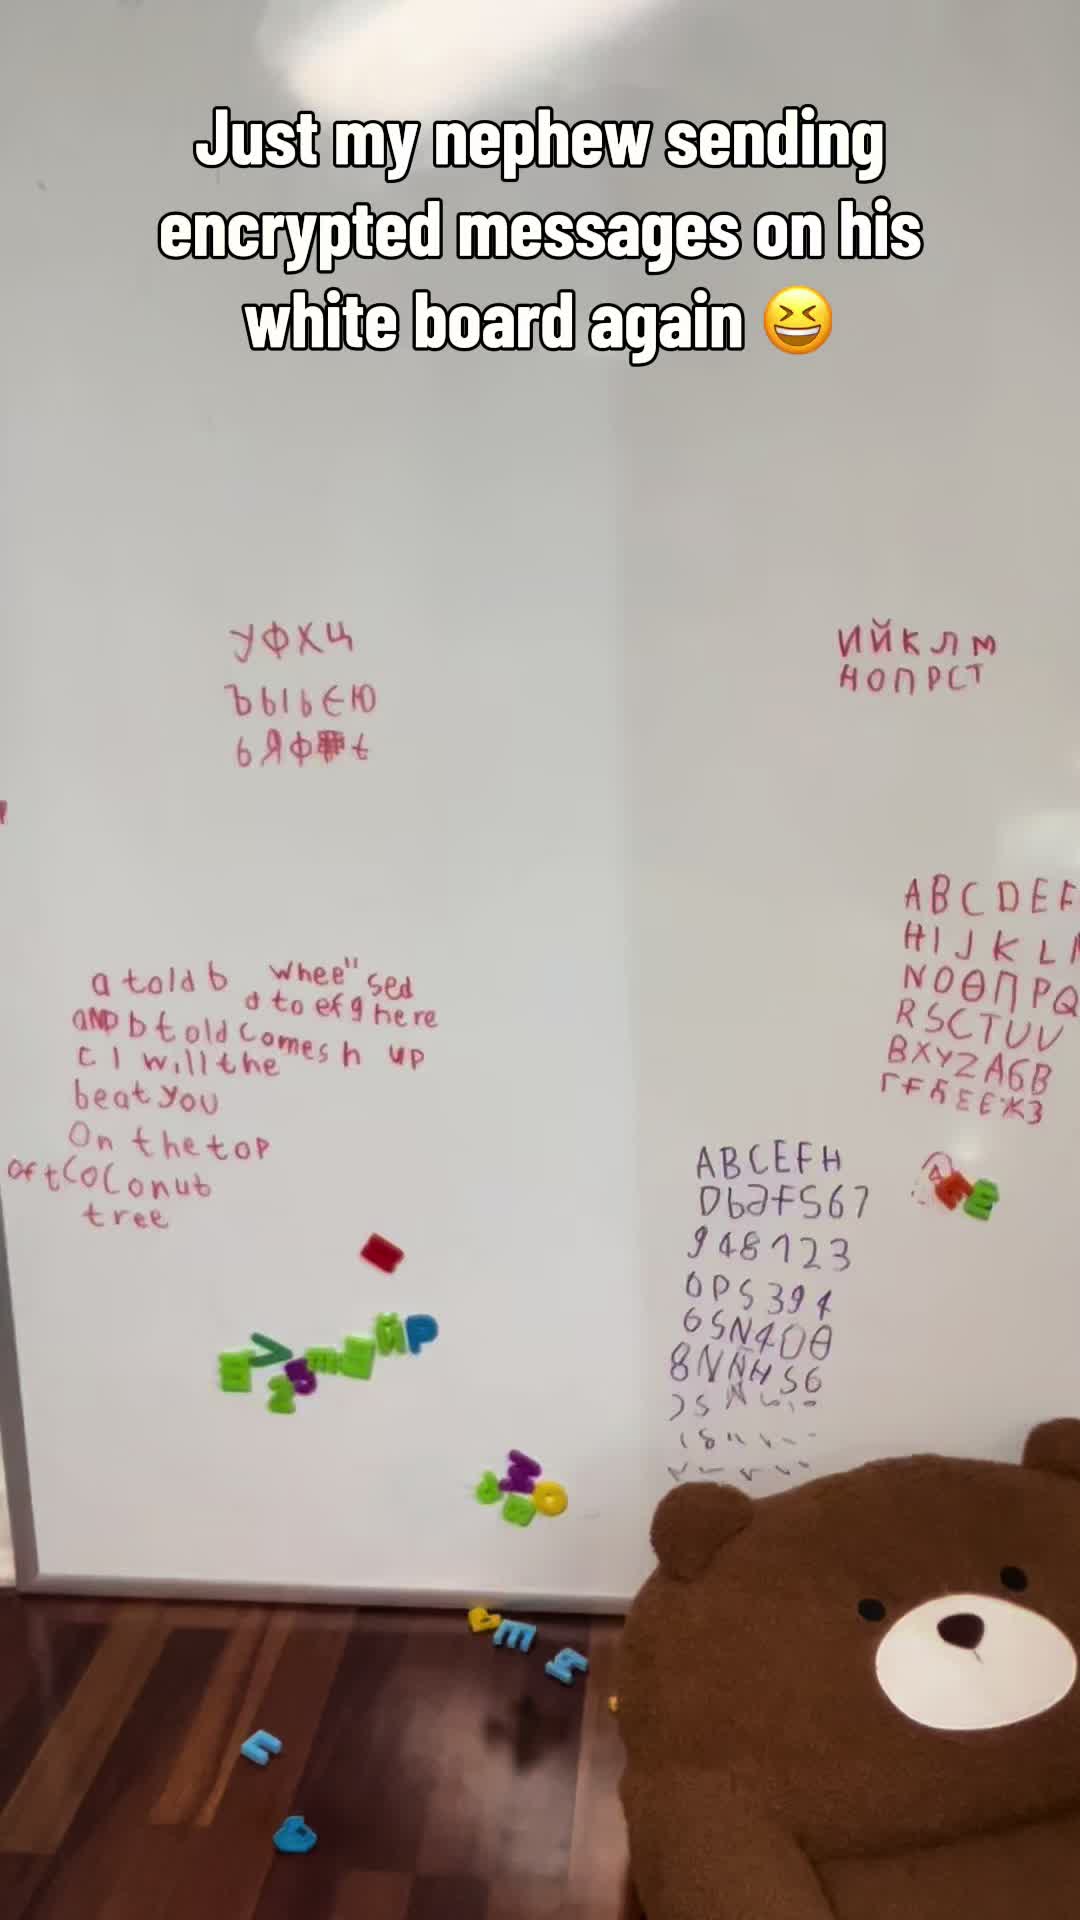 Just my nephew sending
encrypted messages on his
white board again 😆
УФХЦ
ЪЫЬЄЮ
ЬЯФ t
ИЙКЛМ
НОПРСТ
a told b whee" sed
AND b told comes h up
d to efg here
c I will the
beat you
On the top
of t Coconut
tree
ABCDEF
HIJKL
NOΘПPQ
RSCTUV
BXYZAБB
ABCEFH
948123
OPS394
6SN4DΘ
8NÑHS6